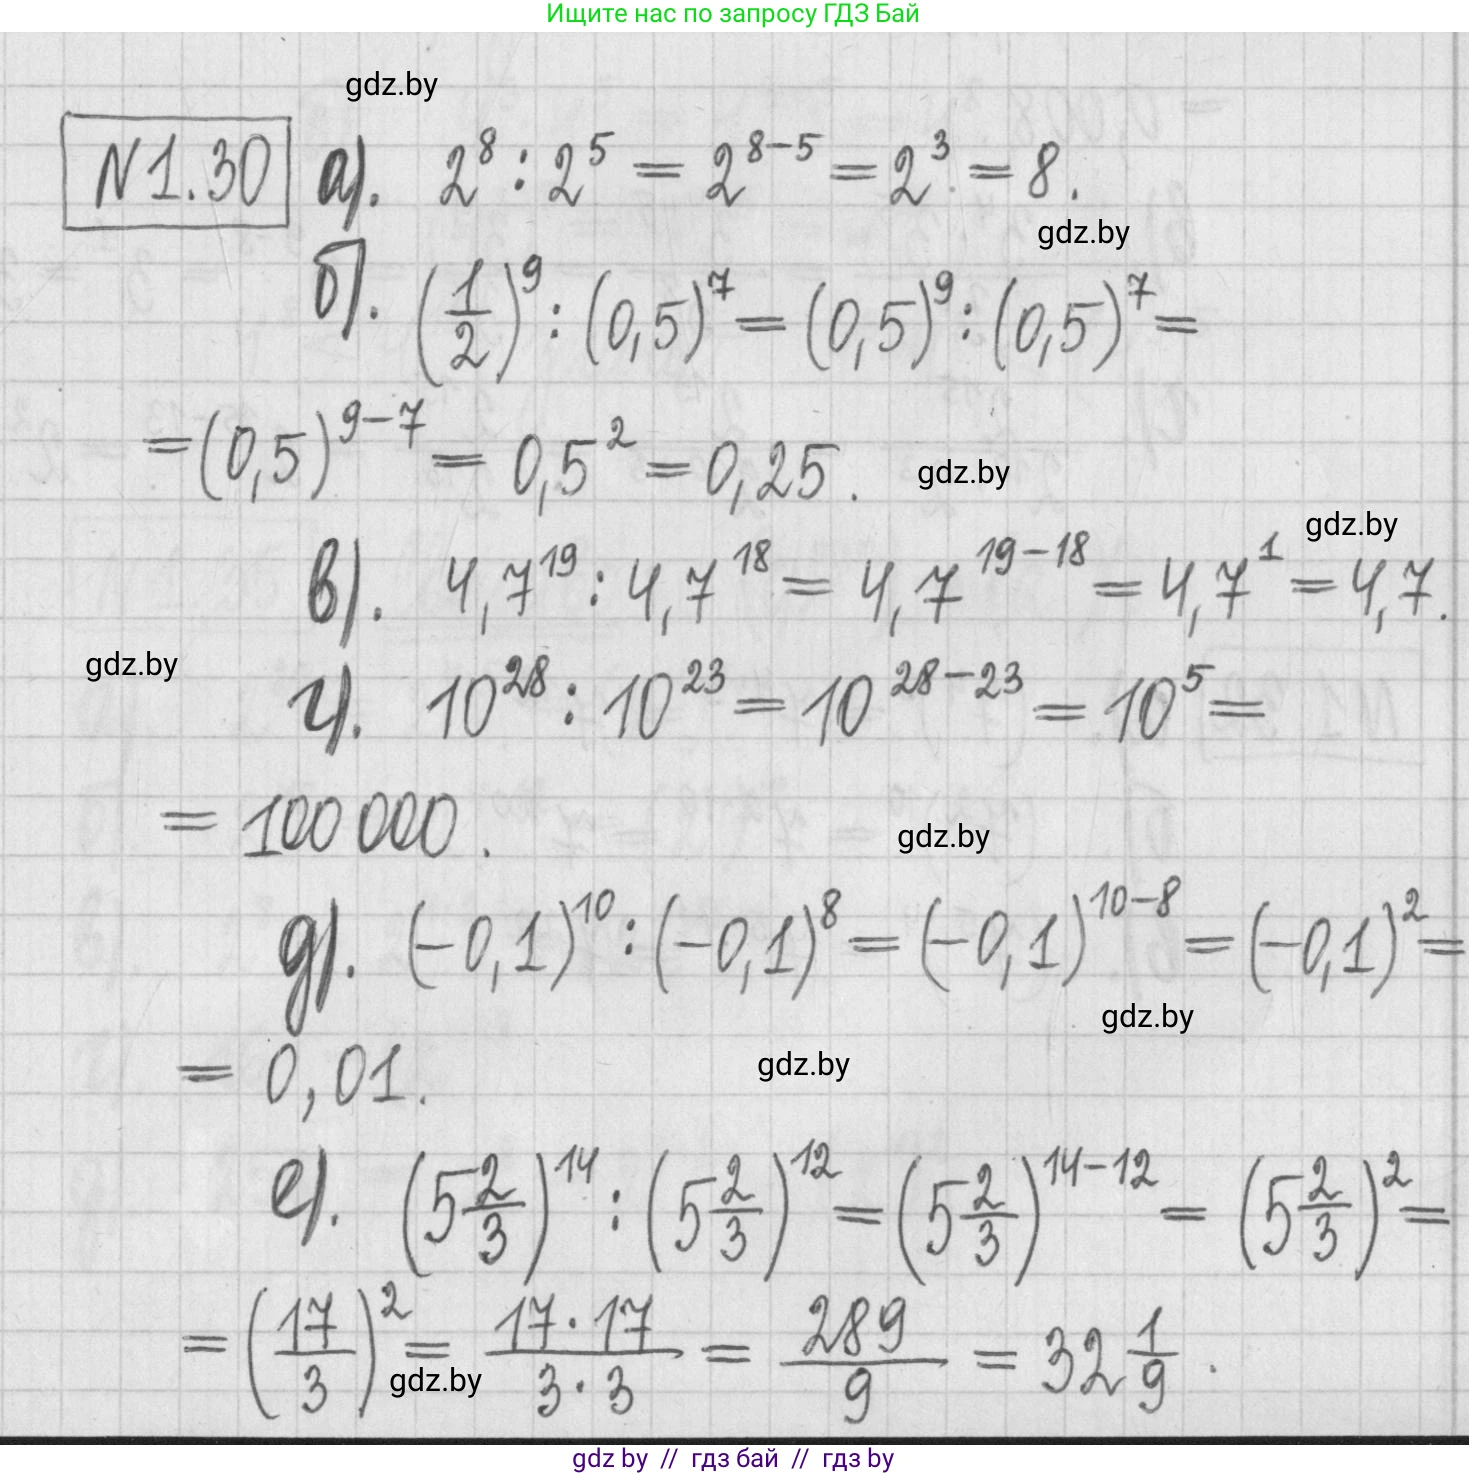 Ищите нас по запросу ГДЗ Бай
gdz.by
N1.30 а). 2^8 : 2^5 = 2^{8-5} = 2^3 = 8.
gdz.by
б). (1/2)^9 : (0,5)^7 = (0,5)^9 : (0,5)^7 =
= (0,5)^{9-7} = 0,5^2 = 0,25. gdz.by
gdz.by
в). 4,7^{19} : 4,7^{18} = 4,7^{19-18} = 4,7^1 = 4,7.
gdz.by
г). 10^{28} : 10^{23} = 10^{28-23} = 10^5 =
= 100 000. gdz.by
д). (-0,1)^{10} : (-0,1)^8 = (-0,1)^{10-8} = (-0,1)^2 =
gdz.by
= 0,01. gdz.by
е). (5 2/3)^{14} : (5 2/3)^{12} = (5 2/3)^{14-12} = (5 2/3)^2 =
= (17/3)^2 = 17·17/3·3 = 289/9 = 32 1/9.
gdz.by
gdz by // гдз бай // гдз by